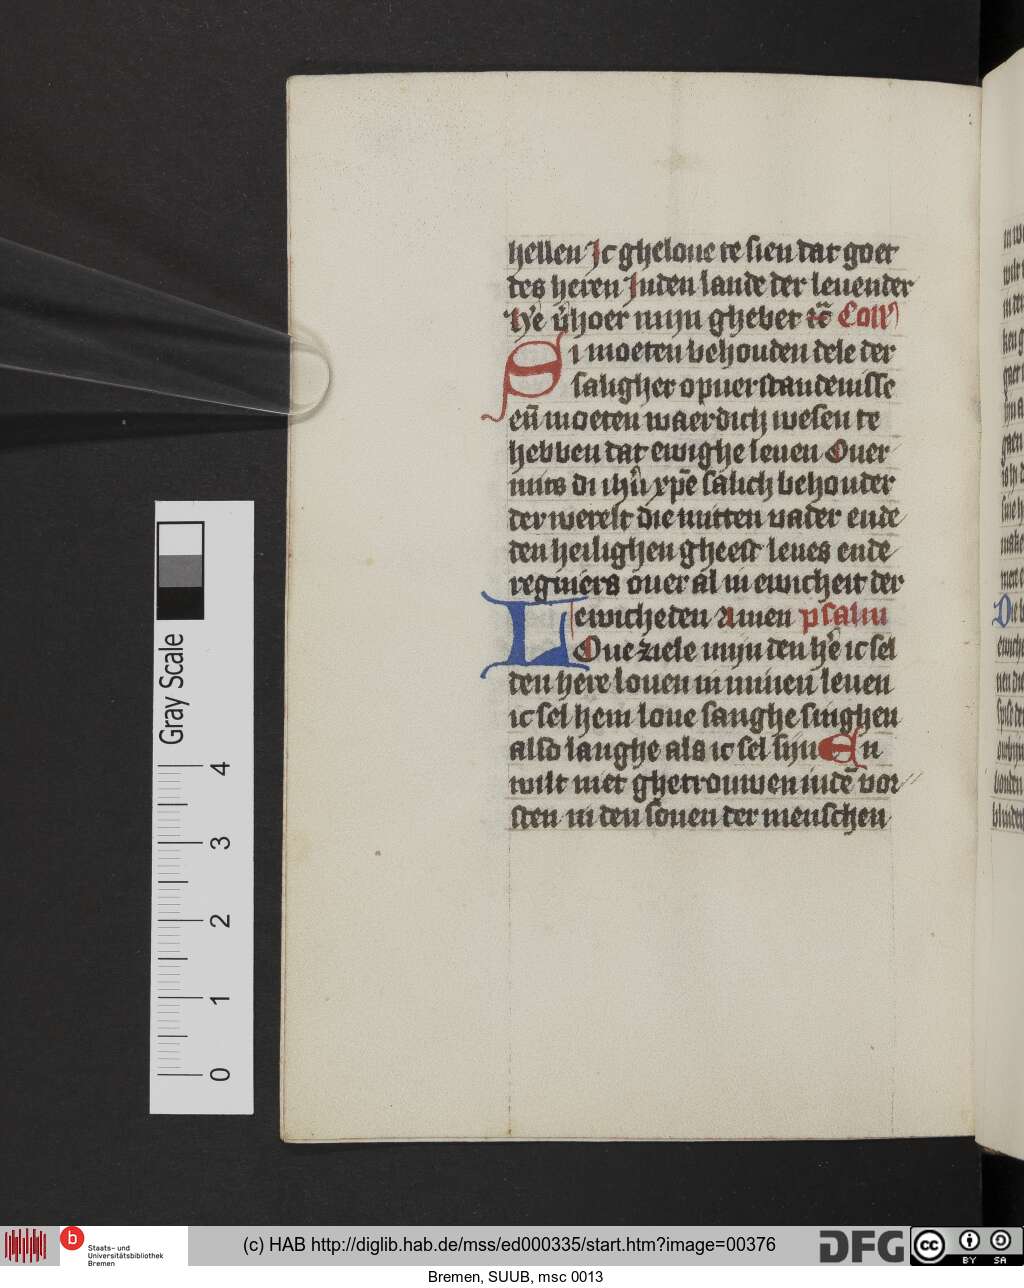 hellen Ic gheloue te sien dat goet
des heren Inden lande der leuender
He v̄hoer mijn ghebet zc̄ Coll'
Si moeten behouden dele der
saligher opuerstandenisse
en̄ moeten waerdich wesen te
hebben dat ewighe leuen Ouer
mits di ih̄u xp̄e salich behouder
der werelt die mitten vader ende
den heilighen gheest leues ende
regniers ouer al in ewicheit der
ewicheden Amen psalm
Loue ziele mijn den he ic sel
den here louen in minen leuen
ic sel hem loue sanghe singhen
also langhe als ic sel sijn En
wilt niet ghetrouwen indē vor
sten in den sonen der menschen
Gray Scale
4
3
2
1
0
Dn
blinden
b
Staats- und
Universitätsbibliothek
Bremen
(c) HAB http://diglib.hab.de/mss/ed000335/start.htm?image=00376
DFG
cc
BY SA
Bremen, SUUB, msc 0013